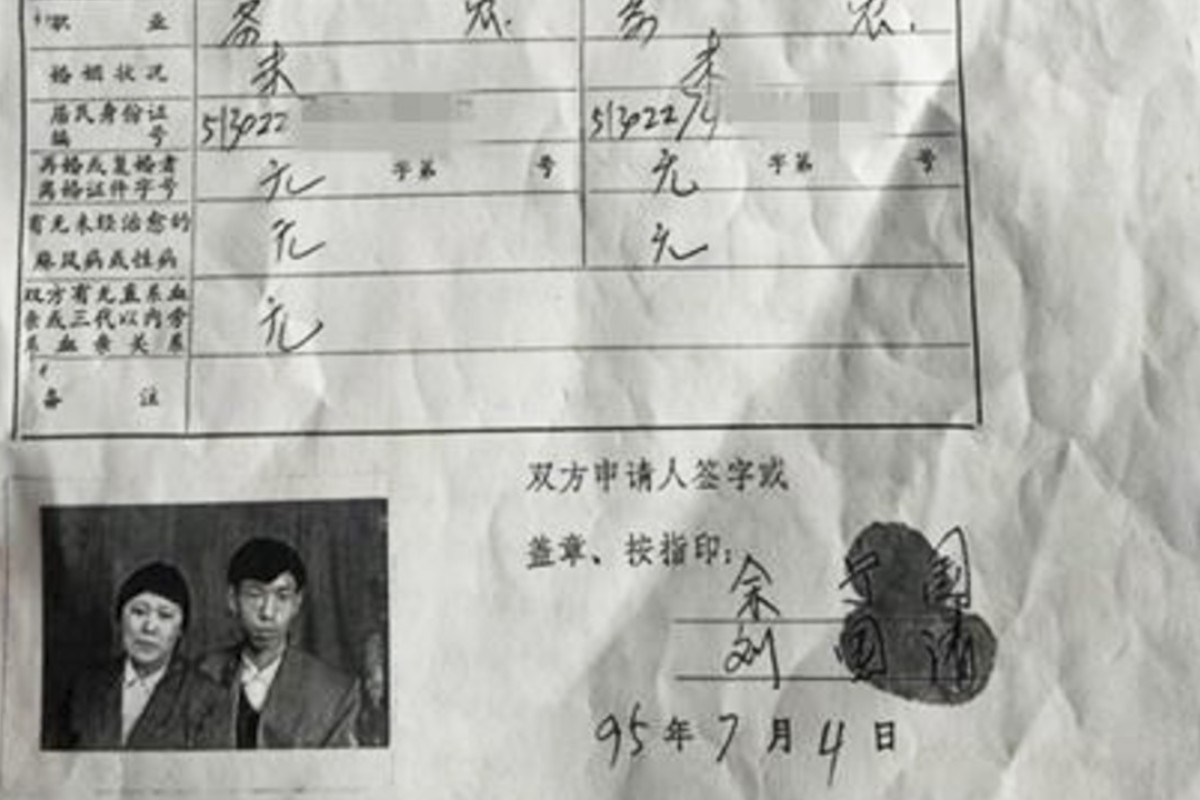 职 业 务 农. 务 农.
婚姻状况 未 未
居民身份证 513022 51302274
编 号
再婚或复婚者 无 字第 号 无 字第 号
离婚证件字号
有无未经治愈的 无 无
麻风病或性病
双方有无直系血 无
亲或三代以内旁
系血亲关系
备 注
双方申请人签字或
盖章、按指印:
余 宁 国
刘 国 清
95年7月4日